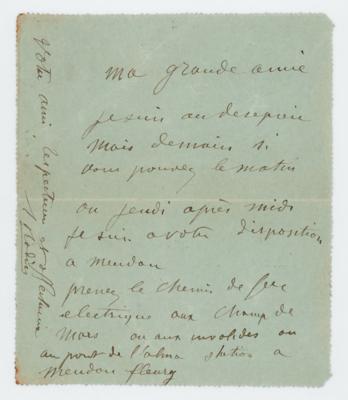 ma grande amie
je suis au desespoir
mais demain si
vous pouvez le matin
ou jeudi après midi
je suis a votre disposition
a Meudon
prenez le chemin de fer
electrique aux champ de
Mars ou aux invalides ou
au pont de l'alma station a
Meudon fleury
Votre ami respectueux et affectueux
A Rodin